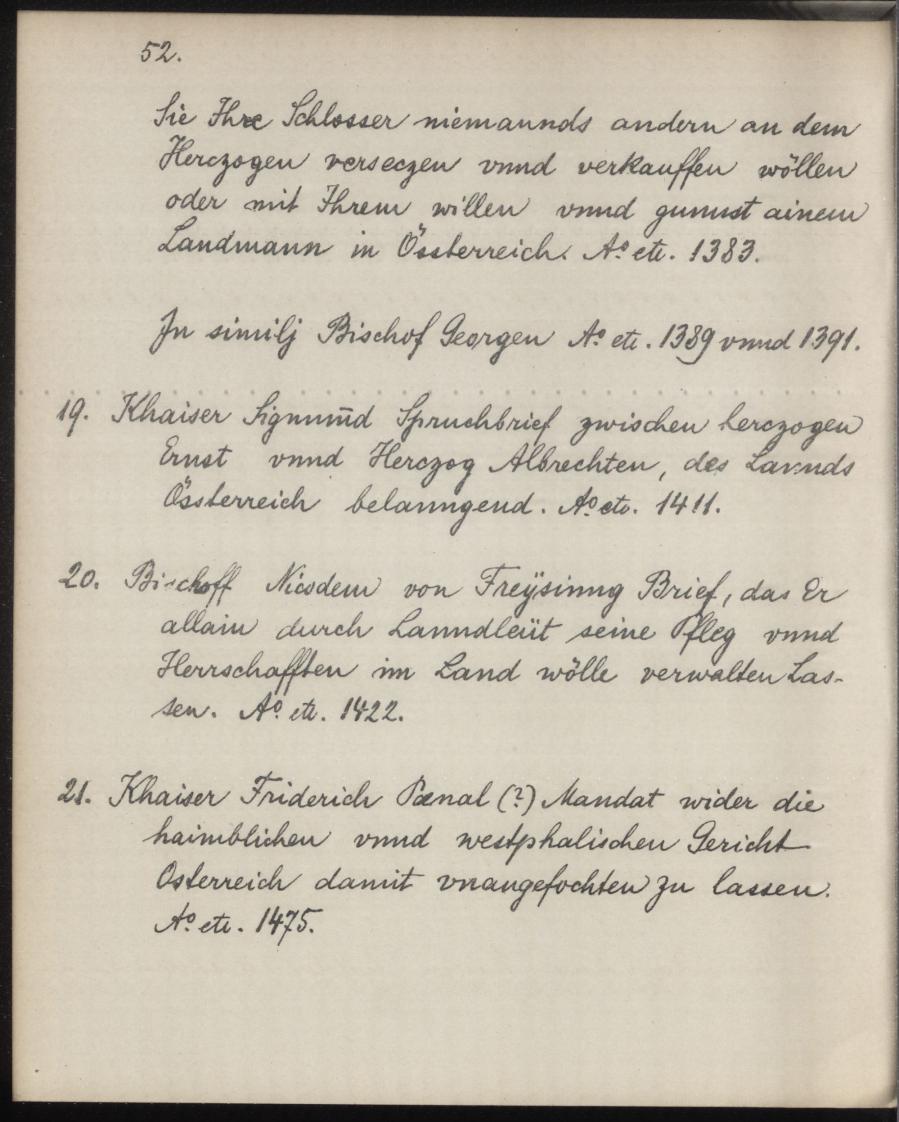 52.
Sie Ihre Schlosser niemannds andern an dem
Herczogen verseczen vnnd verkauffen wöllen
oder mit Ihrem willen vnnd gunnst ainem
Landmann in Össterreich. Aº etc. 1383.
In similj Bischof Georgen Aº etc. 1389 vnnd 1391.
19. Khaiser Sigmun̄d Spruchbrief zwischen herczogen
Ernst vnnd Herczog Albrechten, des Lannds
Össterreich belanngend. Aº etc. 1411.
20. Bischoff Nicodem von Freÿsinng Brief, das Er
allain durch Lanndleüt seine Pfleg vnnd
Herrschafften im Land wölle verwalten Las-
sen. Aº etc. 1422.
21. Khaiser Friderich Pœnal (?) Mandat wider die
haimblichen vnnd westphalischen Gericht
Osterreich damit vnangefochten zu lassen.
Aº etc. 1475.